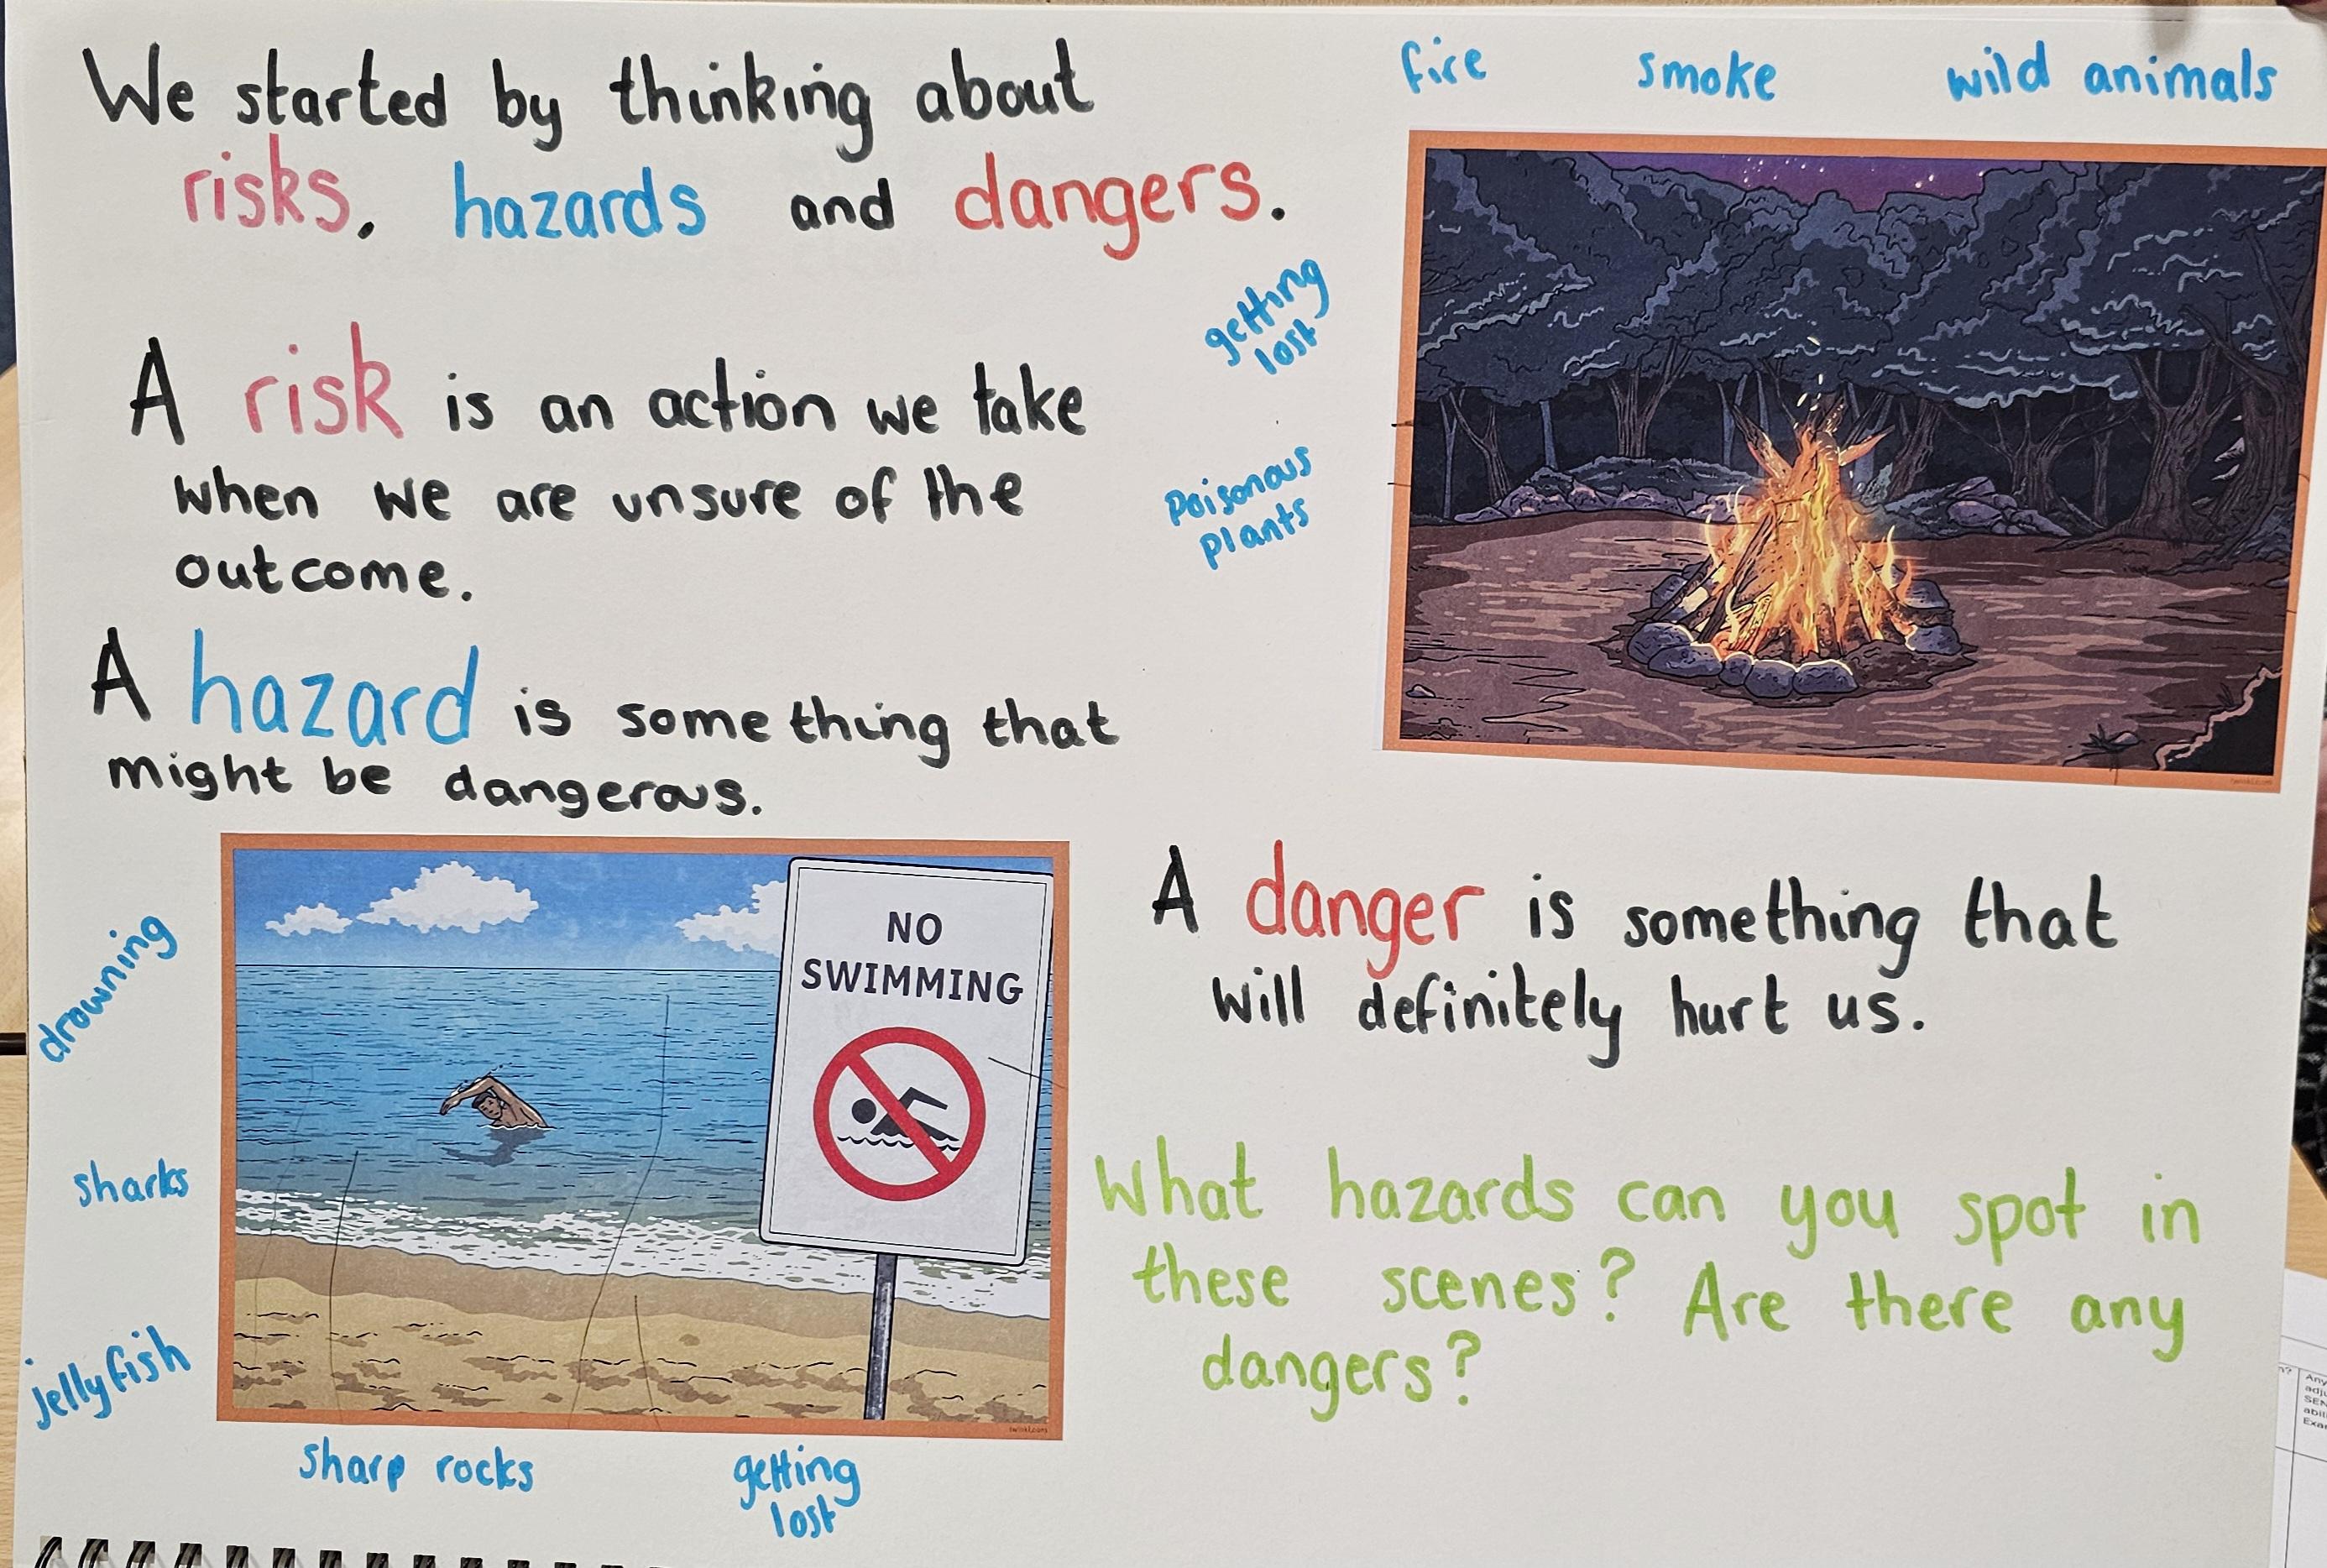 We started by thinking about
risks, hazards and dangers.
A risk is an action we take
when we are unsure of the
outcome.
A hazard is something that
might be dangerous.
fire smoke wild animals
getting
lost
Poisonous
plants
twinkl.com
drowning
sharks
jellyfish
sharp rocks
getting
lost
NO
SWIMMING
twinkl.com
A danger is something that
will definitely hurt us.
What hazards can you spot in
these scenes? Are there any
dangers?